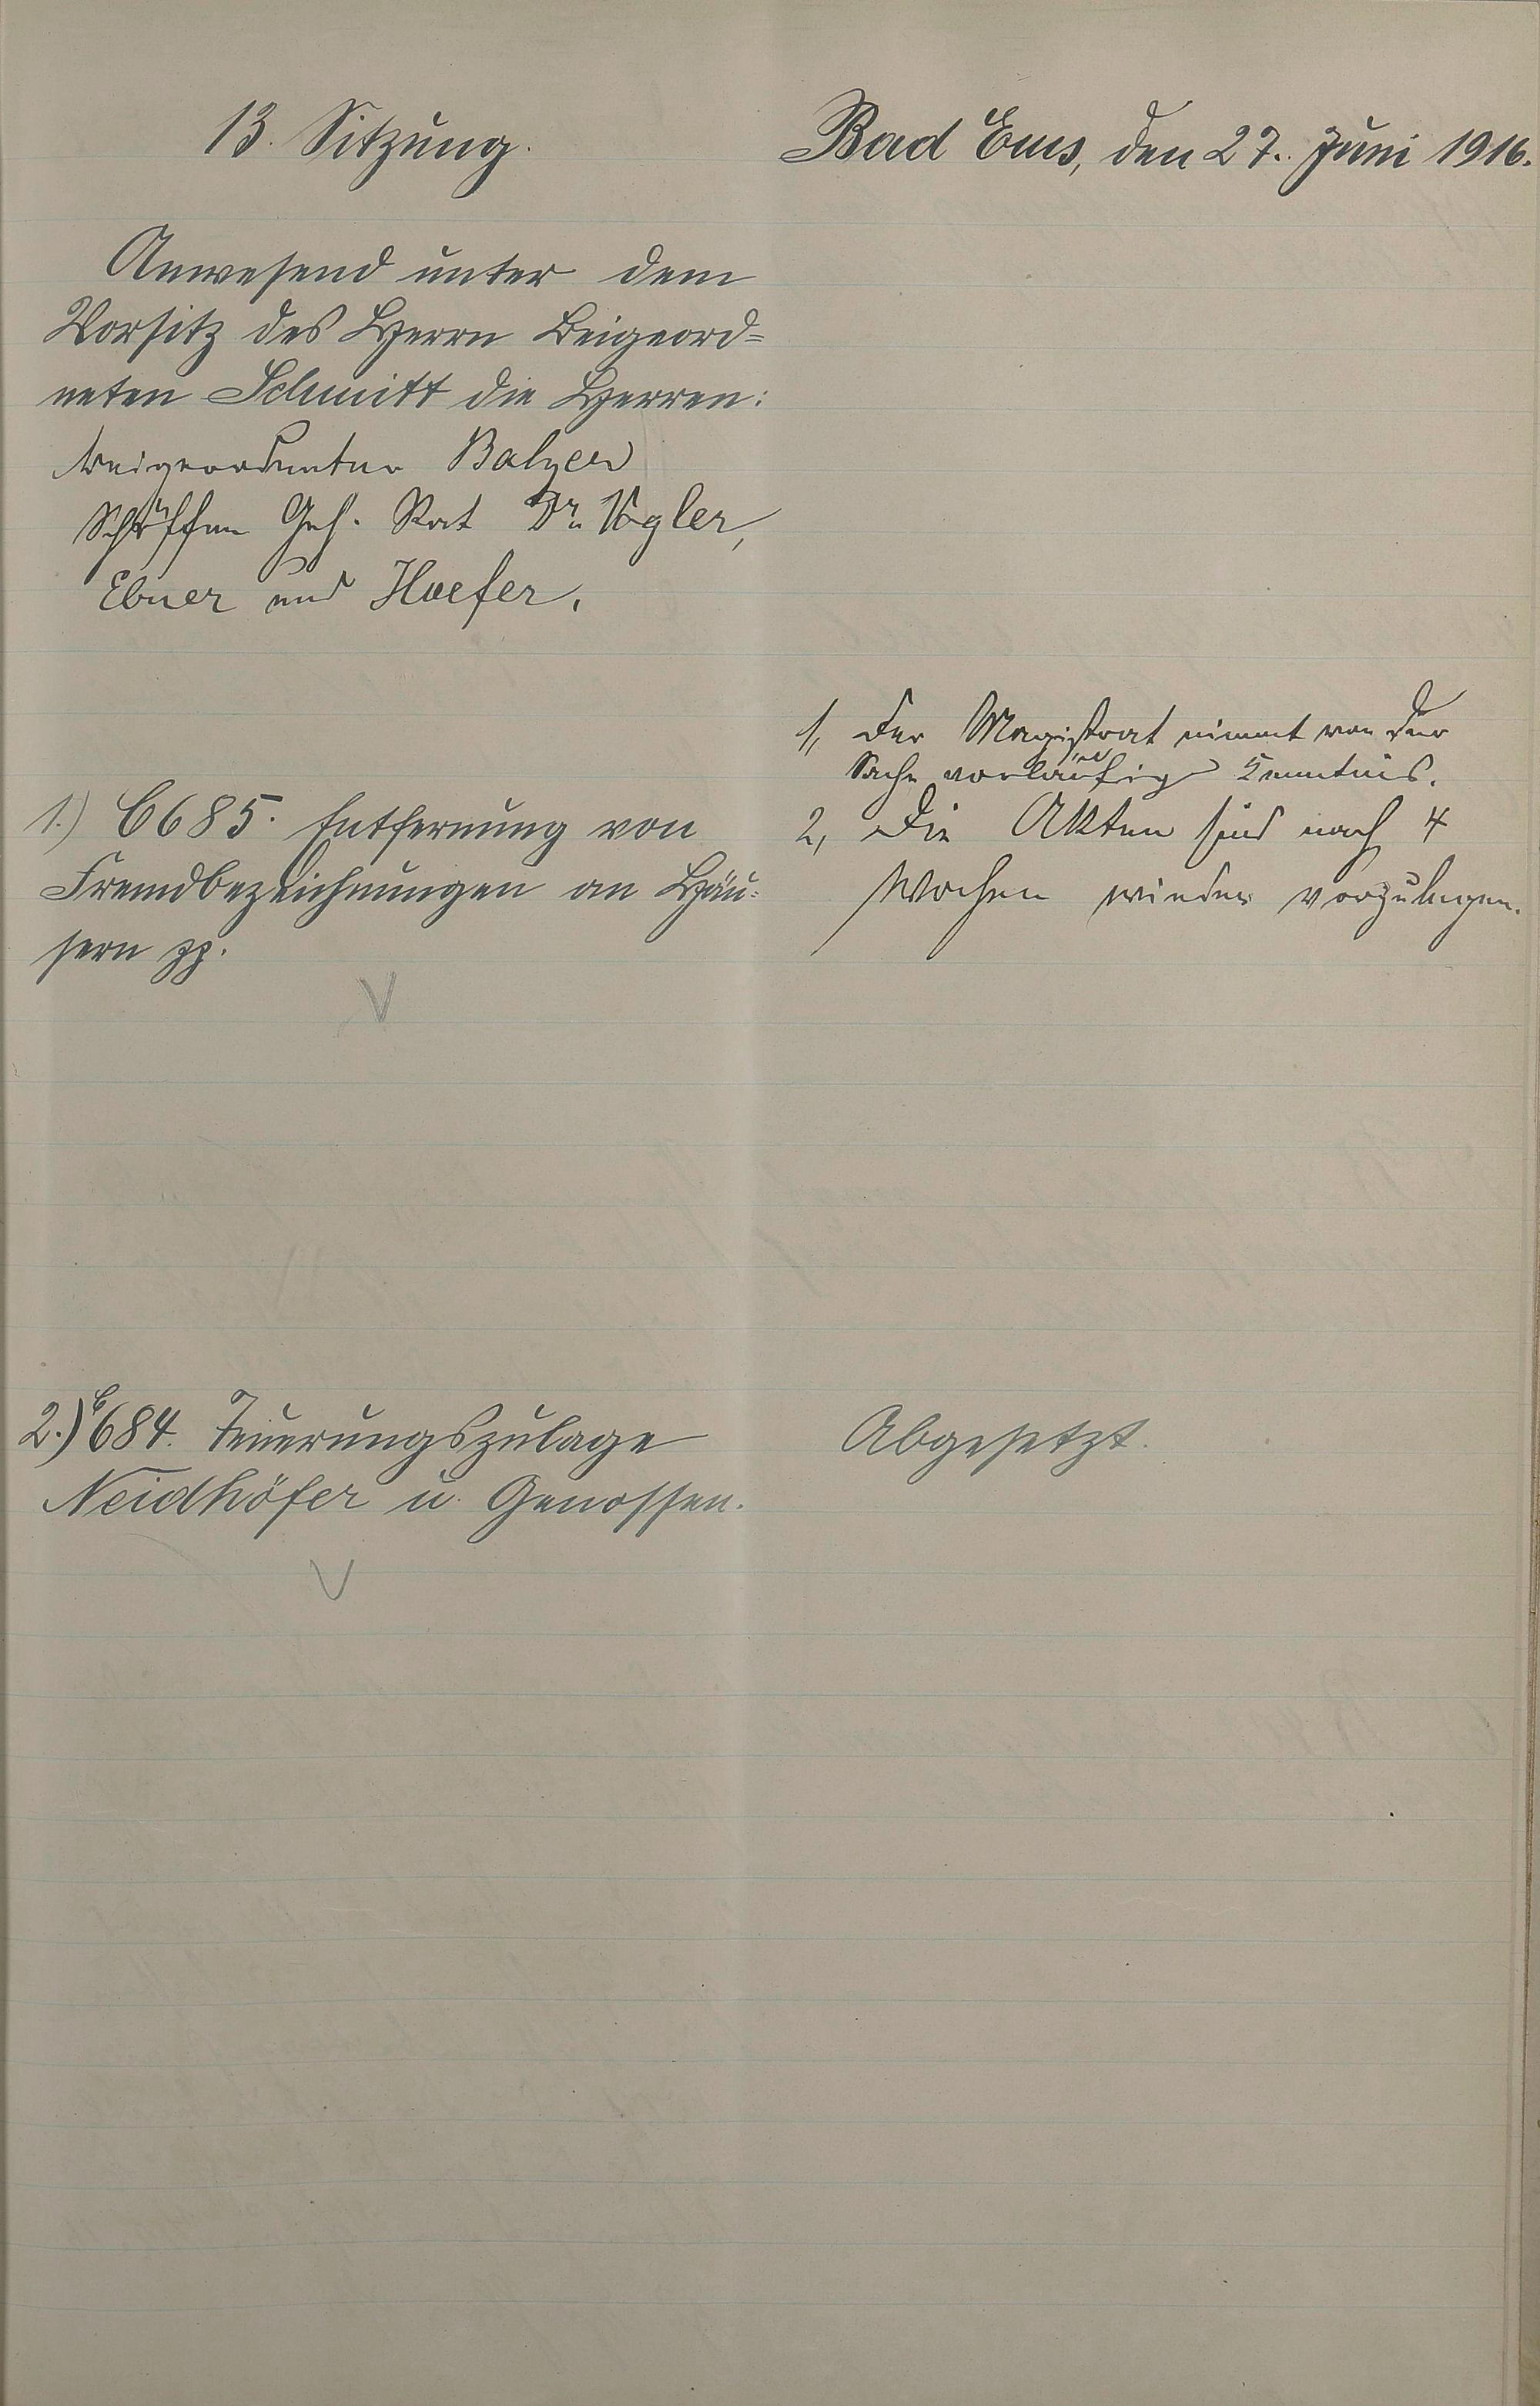 13. Sitzung.
Bad Ems, den 27. Juni 1916.
Anwesend unter dem
Vorsitz des Herrn Beigeord=
neten Schmitt die Herren:
Beigeordneter Balzer
Schöffen Geh. Rat Dr. Vogler,
Ebner und Hoefer.
1, Der Magistrat nimmt von der
Sache vorläufig Kenntnis.
2, Die Akten sind nach 4
Wochen wieder vorzulegen.
1.) C 685. Entfernung von
Fremdbezeichnungen an Häu=
sern pp.
V
2.) C 684. Teuerungszulage
Neidhöfer u. Genossen.
V
Abgesetzt.